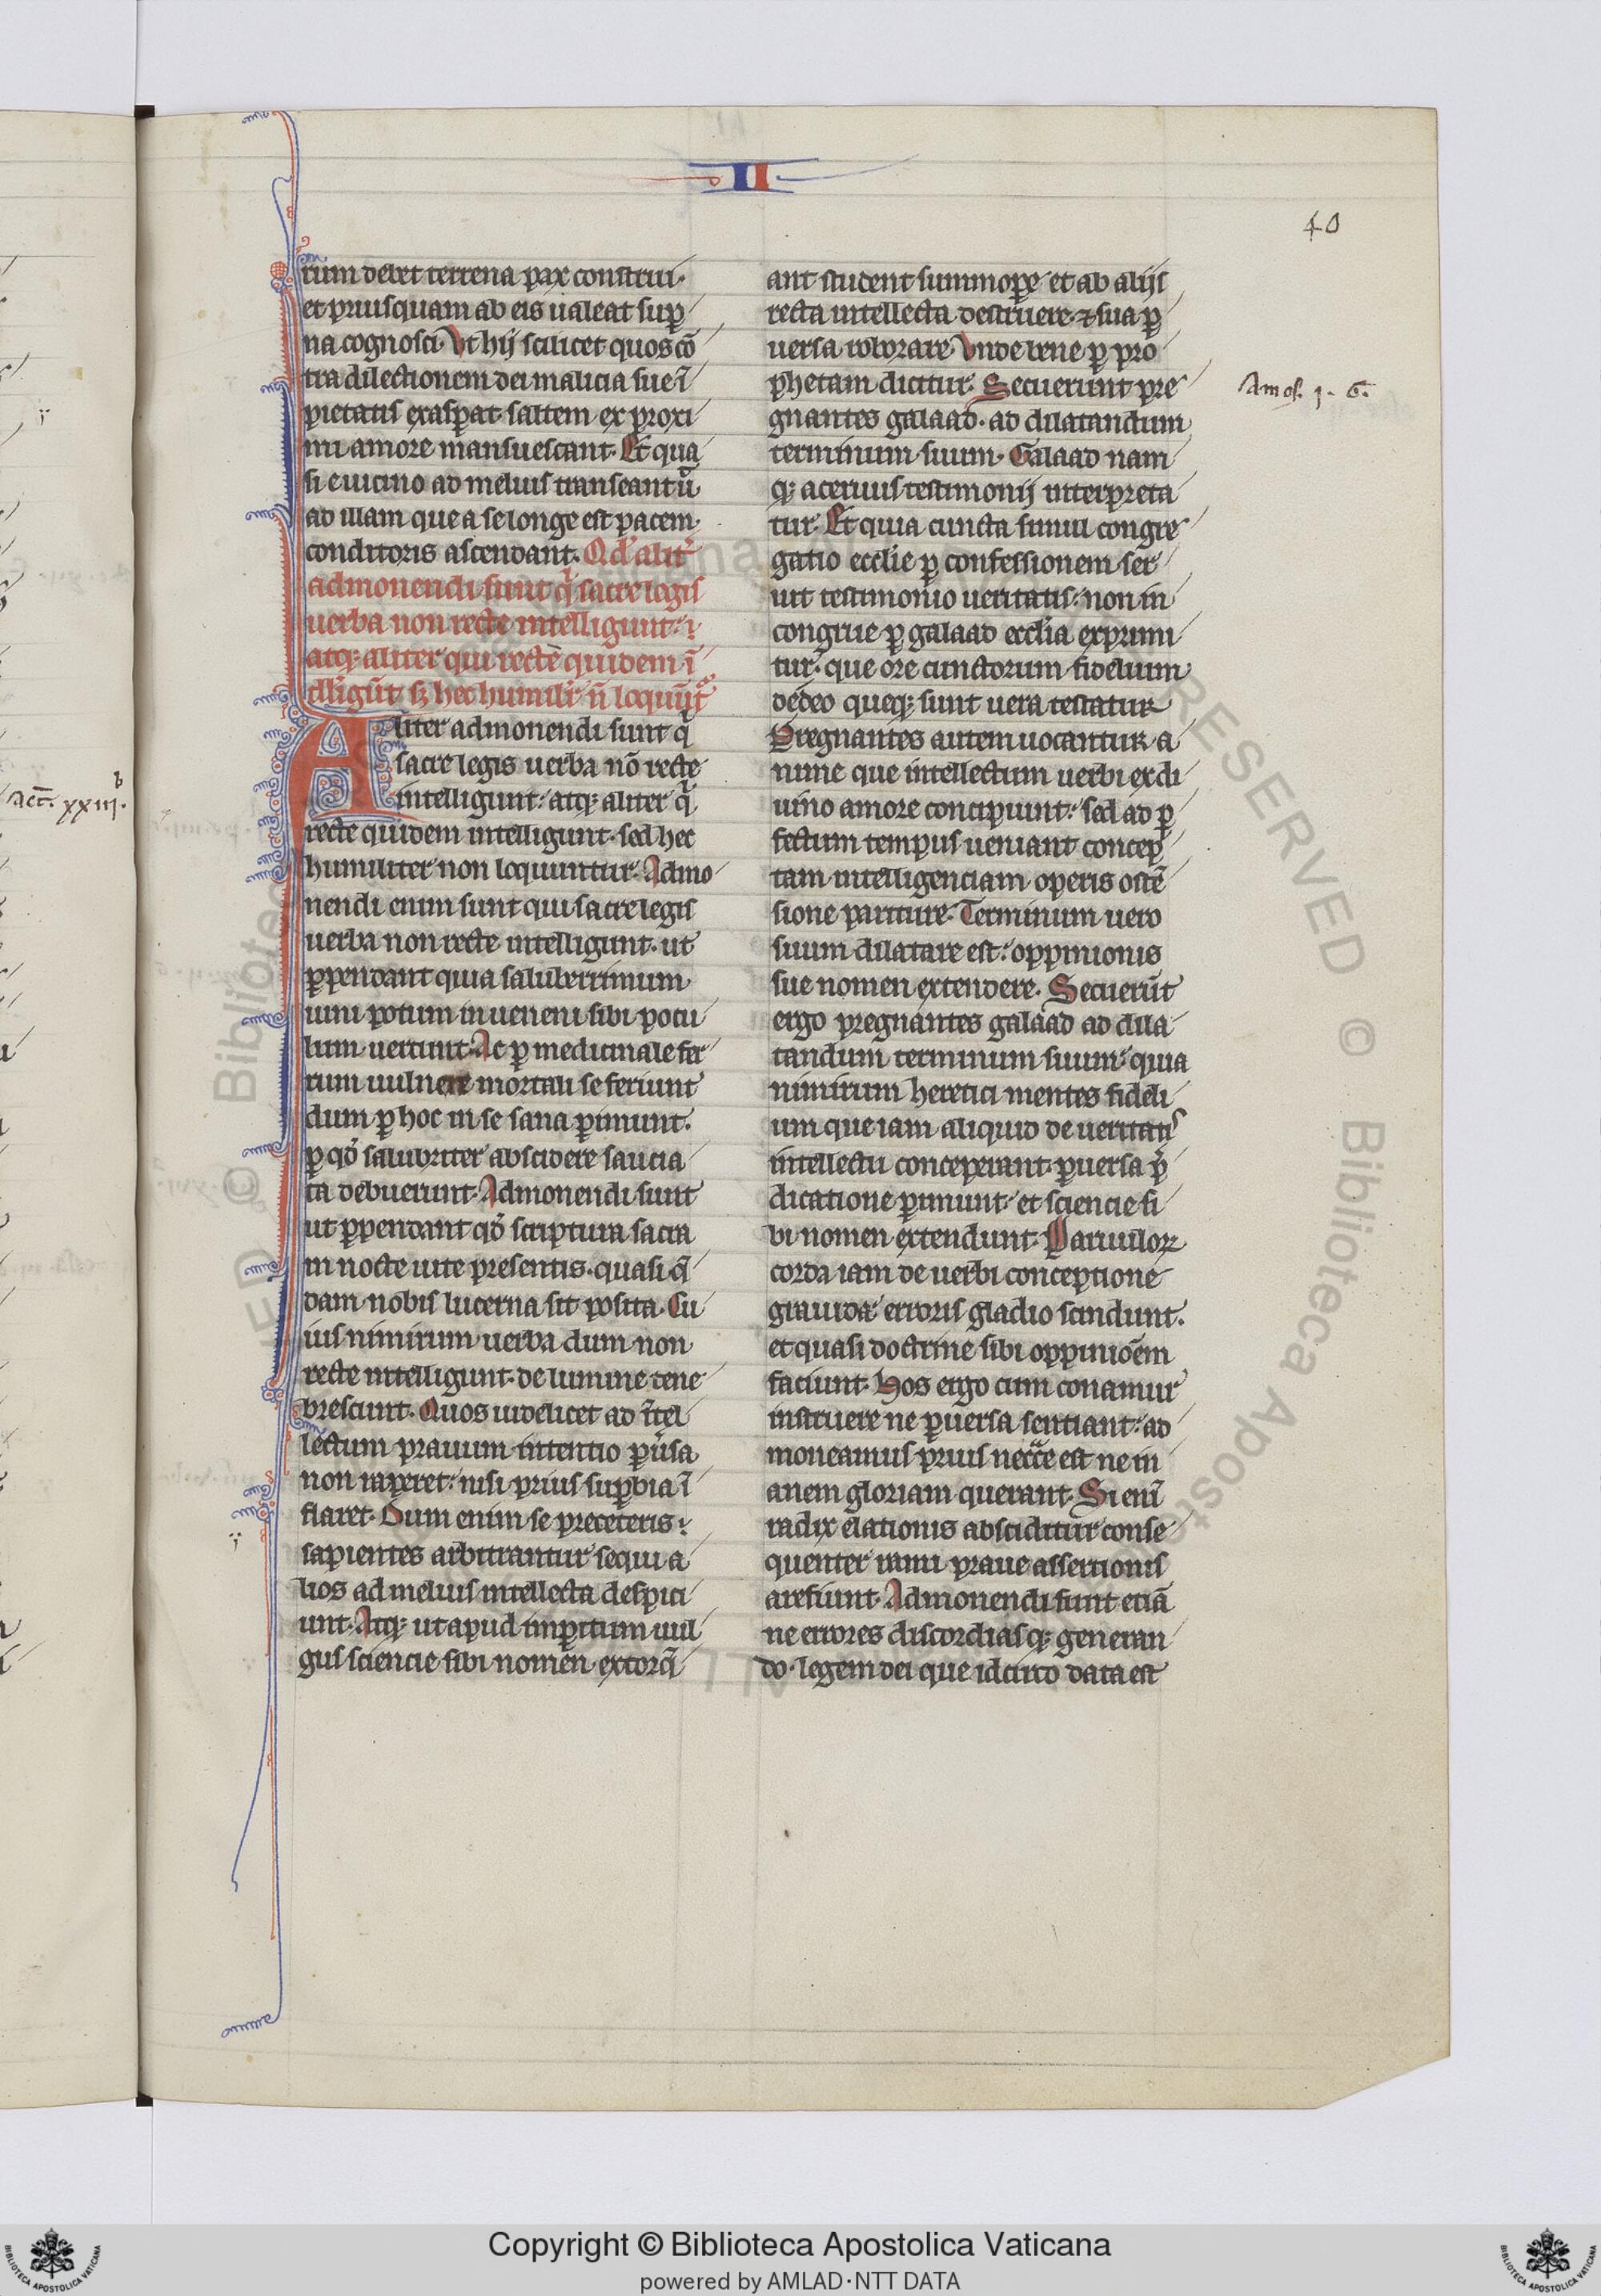 II
40
rum debet terrena pax construi.
et priusquam ab eis ualeat sup̱
na cognosci. Ut hij scilicet quos cō
tra dilectionem dei malicia sue ī
pietatis exasp̱at. saltem ex proxi
mi amore mansuescant. Et qua
si e uicino ad melius transeant ū
ad illam que a se longe est pacem.
conditoris ascendant. Qd' alit̓
admonendi sunt qͥ sacre legis
uerba non recte intelligunt.
atq; aliter qui recte quidem ī
telligūt sꝫ hec humilit̓ n̄ loquūtᷣ
Aliter admonendi sunt qͥ
sacre legis uerba nō recte
intelligunt. atq; aliter qͥ
recte quidem intelligunt. sed hec
humiliter non loquuntur. Admo
nendi enim sunt qui sacre legis
uerba non recte intelligunt. ut
ꝑpendant quia saluberrimum
uini potum in ueneni sibi pocu
lum uertunt. Ac ꝑ medicinale fer
rum uulnere mortali se feriunt
dum ꝑ hoc in se sana ꝑimunt.
ꝑ qđ salubriter abscidere saucia
ta debuerunt. Admonendi sunt
ut ꝑpendant qđ scriptura sacra
in nocte uite presentis. quasi q̄
dam nobis lucerna sit posita. Cu
ius nimirum uerba dum non
recte intelligunt. de lumine tene
brescunt. Quos uidelicet ad ītel
lectum prauum intentio ꝑu̓sa
non raperet. nisi prius suꝑbia ī
flaret. Dum enim se pre ceteris
sapientes arbitrantur sequi a
lios ad melius intellecta despici
unt. Atq; ut apud imꝑitum uul
gus sciencie sibi nomen extorq̄
ant student summoꝑe et ab alijs
recta intellecta destruere. ⁊ sua ꝑ
uersa roborare. Unde bene ꝑ pro
phetam dicitur. Secuerunt pre
Amos. 1. G.
gnantes galaad. ad dilatandum
terminum suum. Galaad nam
q; aceruus testimonij interpreta
tur. Et quia cuncta simul congre
gatio ecclīe ꝑ confessionem ser
uit testimonio ueritatis. non in
congrue ꝑ galaad ecclīa exprimi
tur. que ore cunctorum fidelium
de deo queq; sunt uera testatur
Pregnantes autem uocantur a
nime que intellectum uerbi ex di
uino amore concipiunt. sed ad ꝑ
fectum tempus ueniant concep
tam intelligenciam operis ostē
sione pariture. Terminum uero
suum dilatare est. oppinionis
sue nomen extendere. Secuerūt
ergo pregnantes galaad ad dila
tandum terminum suum. quia
nimirum heretici mentes fideli
um que iam aliquid de ueritatis
intellectu conceperant. ꝑuersa p̄
dicatione ꝑimunt. et sciencie si
bi nomen extendunt. Paruuloꝝ
corda iam de uerbi conceptione
grauida erroris gladio scindunt.
et quasi doctrine sibi oppiniōem
faciunt. Hos ergo cum conamur
instruere ne ꝑuersa sentiant. ad
moneamus prius necc̄e est ne in
anem gloriam querant. Si enī
radix elationis absciditur conse
quenter rami praue assertionis
arefiunt. Admonendi sunt etiā
ne errores discordiasq; generan
do. legem dei que idcirco data est
Act. xxiij. b
Copyright © Biblioteca Apostolica Vaticana
powered by AMLAD·NTT DATA